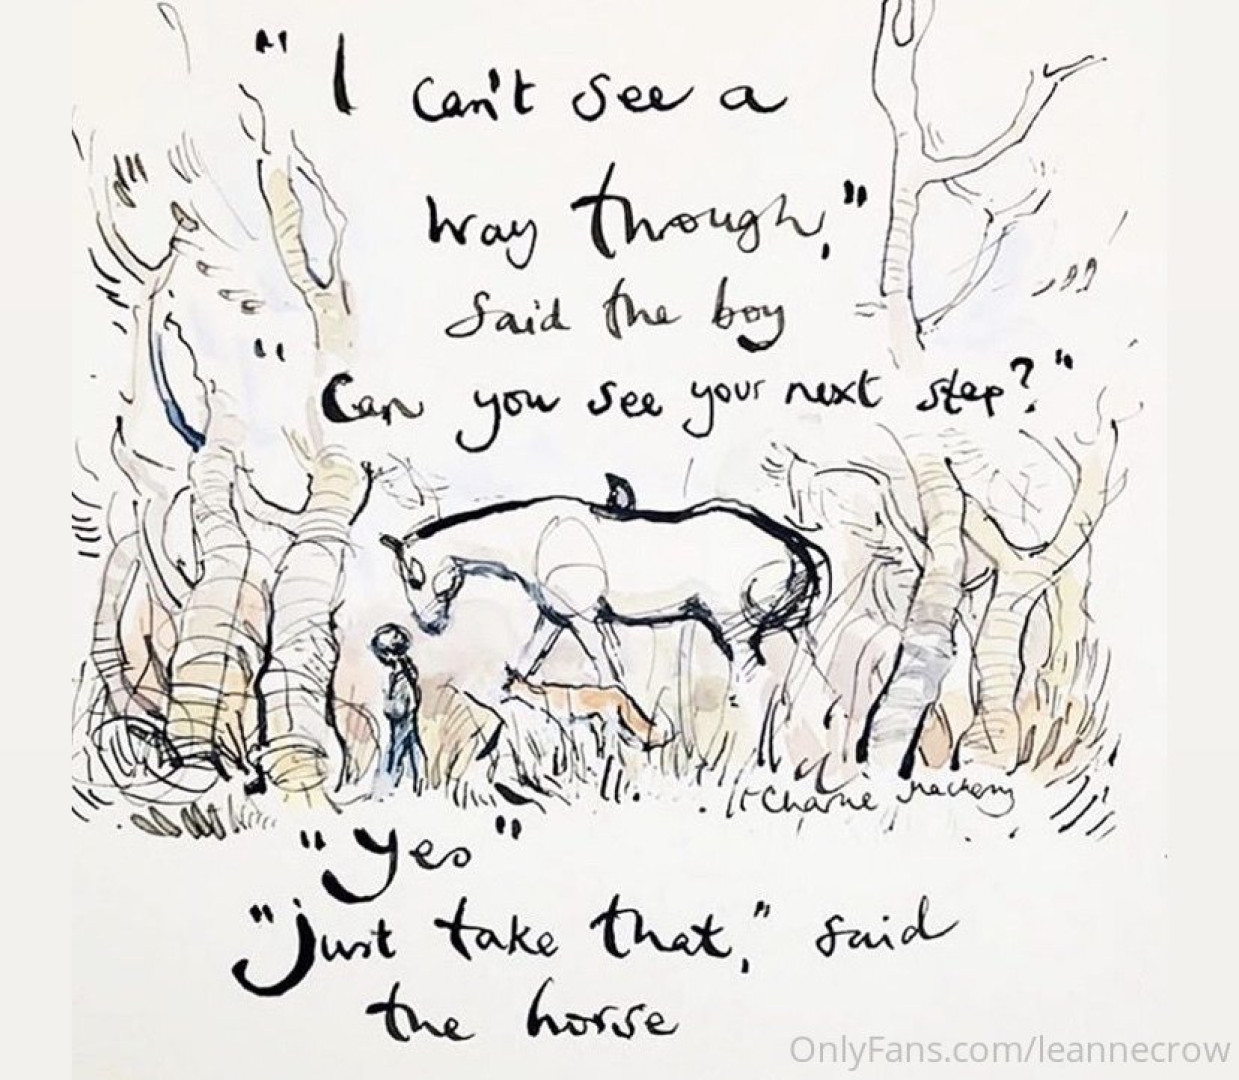 "I can't see a
way through,"
said the boy
"Can you see your next step?"
Charlie Mackesy
"Yes"
"just take that," said
the horse
OnlyFans.com/leannecrow